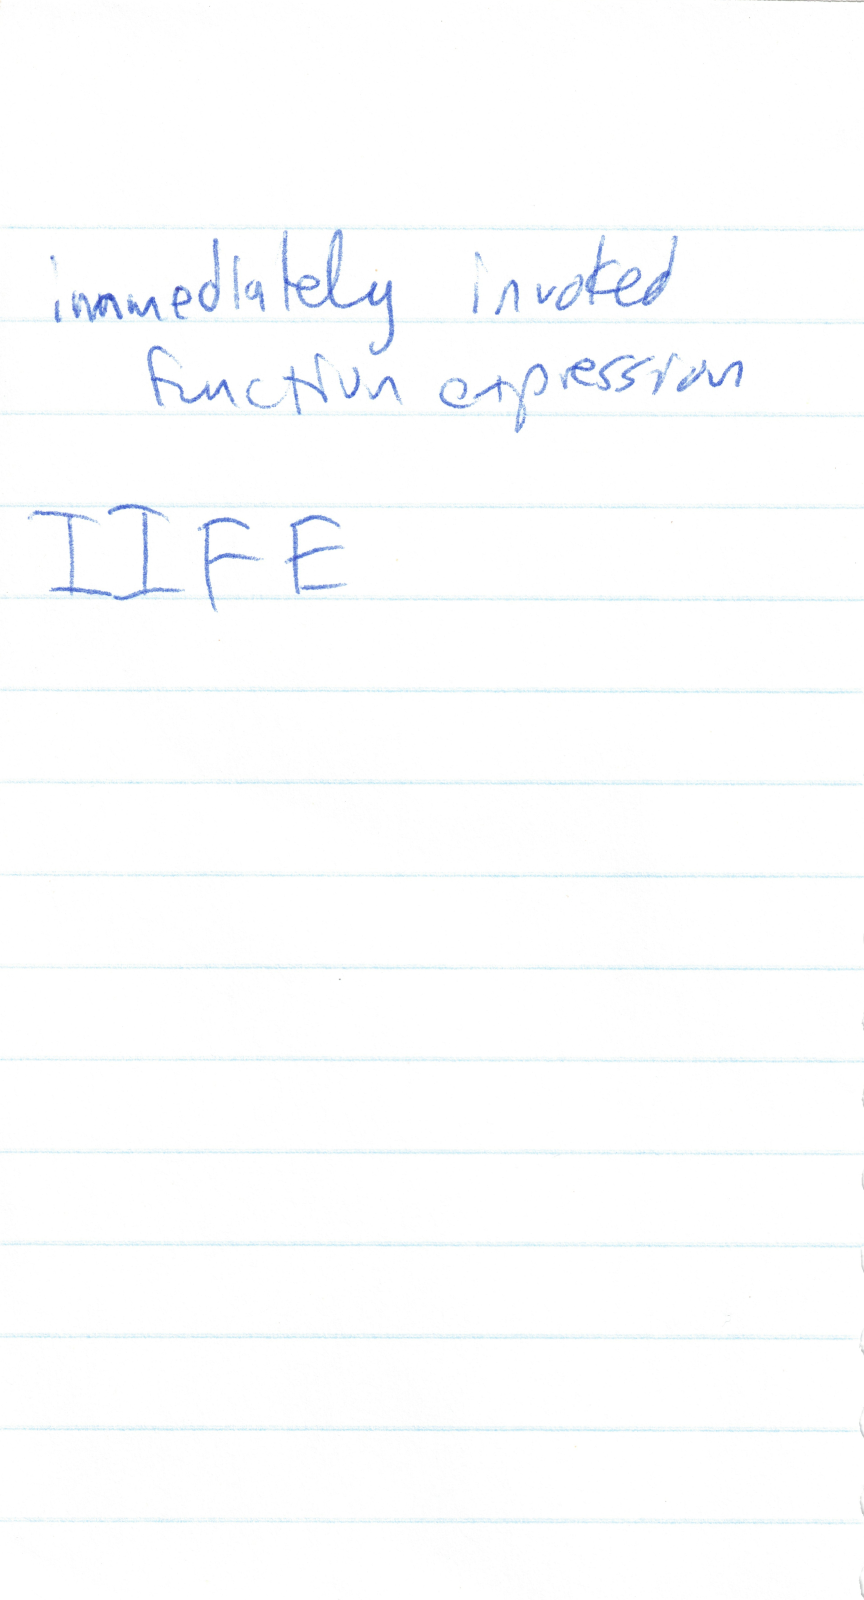 immediately invoked
function expression
IIFE